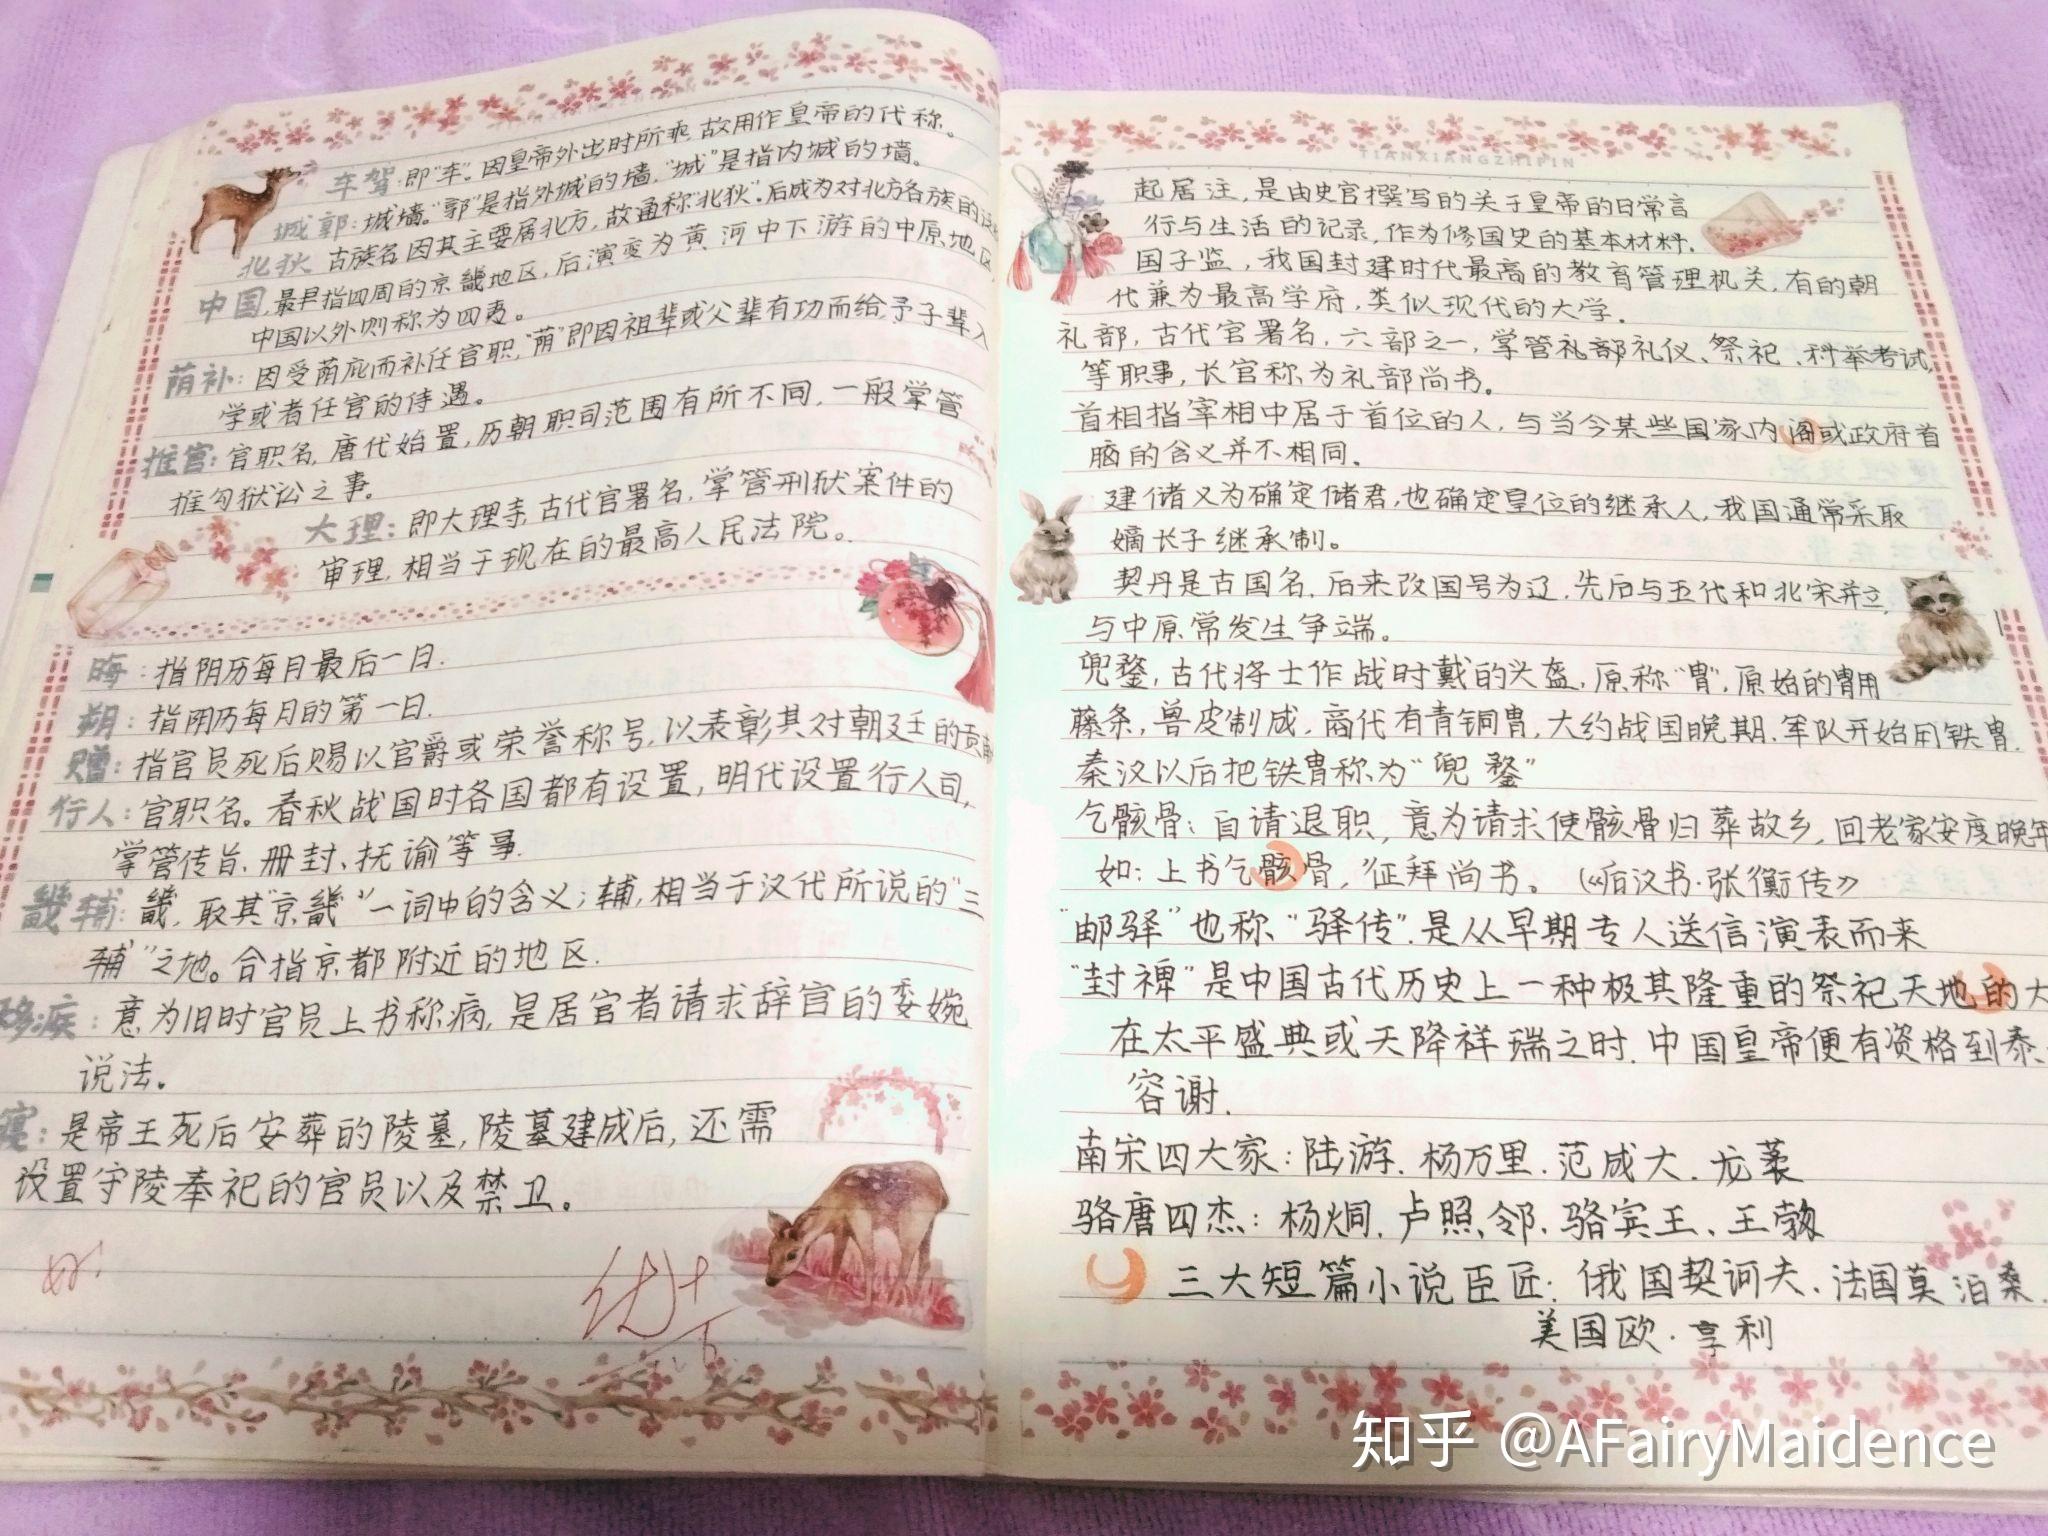 车驾:即"车"。因皇帝外出时所乘,故用作皇帝的代称。
城郭:城墙。"郭"是指外城的墙,"城"是指内城的墙。
北狄 古族名因其主要居北方,故通称"北狄".后成为对北方各族的泛
中国,最早指四周的京畿地区,后演变为黄河中下游的中原地区,
中国以外则称为四夷。
荫补:因受荫庇而补任官职,"荫"即因祖辈或父辈有功而给予子辈入
学或者任官的待遇。
推官:官职名,唐代始置,历朝职司范围有所不同,一般掌管
推勾狱讼之事。
大理:即大理寺,古代官署名,掌管刑狱案件的
审理,相当于现在的最高人民法院。
晦:指阴历每月最后一日.
朔:指阴历每月的第一日.
赠:指官员死后赐以官爵或荣誉称号,以表彰其对朝廷的贡献
行人:官职名。春秋战国时各国都有设置,明代设置行人司,
掌管传旨、册封、抚谕等事.
畿辅:畿,取其"京畿"一词中的含义;辅,相当于汉代所说的"三
辅"之地。合指京都附近的地区.
移疾:意为旧时官员上书称病,是居官者请求辞官的委婉
说法。
寝:是帝王死后安葬的陵墓,陵墓建成后,还需
设置守陵奉祀的官员以及禁卫。
好
优
TIANXIANGZHIPIN
起居注,是由史官撰写的关于皇帝的日常言
行与生活的记录,作为修国史的基本材料.
国子监,我国封建时代最高的教育管理机关,有的朝
代兼为最高学府,类似现代的大学.
礼部,古代官署名,六部之一,掌管礼部礼仪、祭祀、科举考试,
等职事,长官称为礼部尚书。
首相指宰相中居于首位的人,与当今某些国家内阁或政府首
脑的含义并不相同.
建储义为确定储君,也确定皇位的继承人,我国通常采取
嫡长子继承制。
契丹是古国名,后来改国号为辽,先后与五代和北宋并立,
与中原常发生争端。
兜鍪,古代将士作战时戴的头盔,原称"胄",原始的胄用
藤条,兽皮制成,商代有青铜胄,大约战国晚期,军队开始用铁胄.
秦汉以后把铁胄称为"兜鍪"
乞骸骨:自请退职,意为请求使骸骨归葬故乡,回老家安度晚年
如:上书乞骸骨,征拜尚书。(《后汉书·张衡传》
"邮驿"也称"驿传".是从早期专人送信演表而来
"封禅"是中国古代历史上一种极其隆重的祭祀天地的大
在太平盛典或天降祥瑞之时.中国皇帝便有资格到泰
容谢.
南宋四大家:陆游.杨万里.范成大.尤袤
骆唐四杰:杨炯.卢照邻.骆宾王、王勃
三大短篇小说臣匠:俄国契诃夫.法国莫泊桑.
美国欧·亨利
知乎 @AFairyMaidence